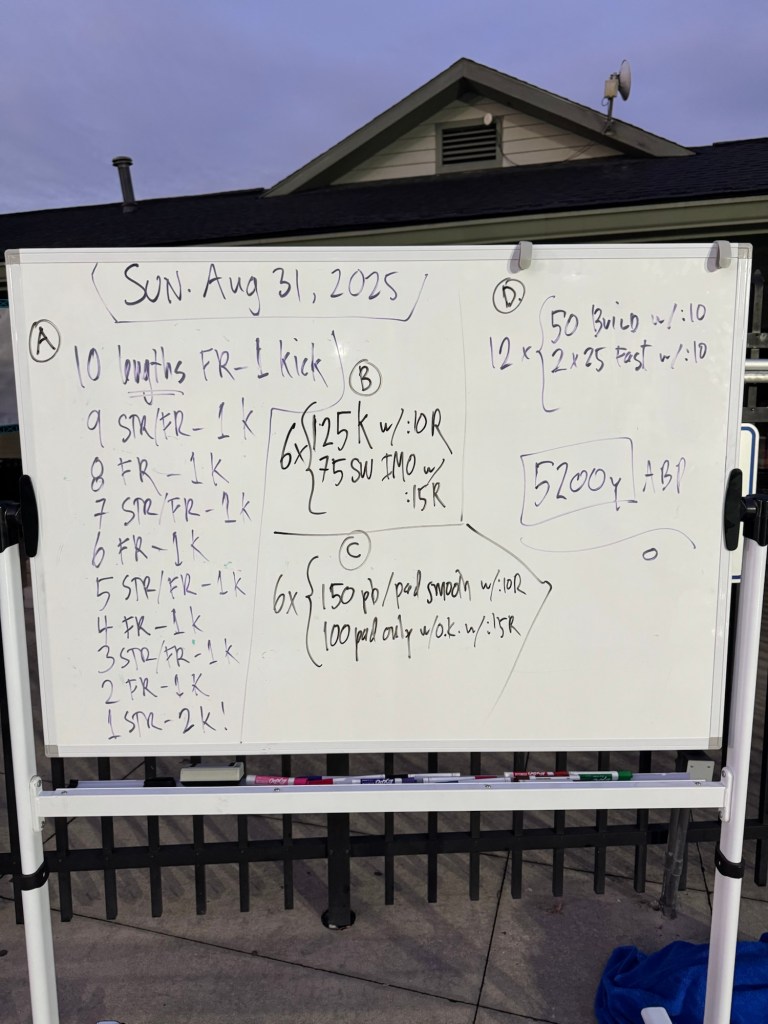 SUN. Aug 31, 2025
A
10 lengths FR-1 kick
9 STR/FR-1 K
8 FR-1K
7 STR/FR-1k
6 FR-1K
5 STR/FR-1k
4 FR-1k
3 STR/FR-1k
2 FR-1K
1 STR-2K!
B
6x { 125 K w/:10R
75 SW IMO w/
:15R
C
6x { 150 pb/pad smooth w/:10R
100 pad only w/o.k. w/:15R
D.
12 x { 50 Build w/:10
2x25 Fast w/:10
5200y ABP